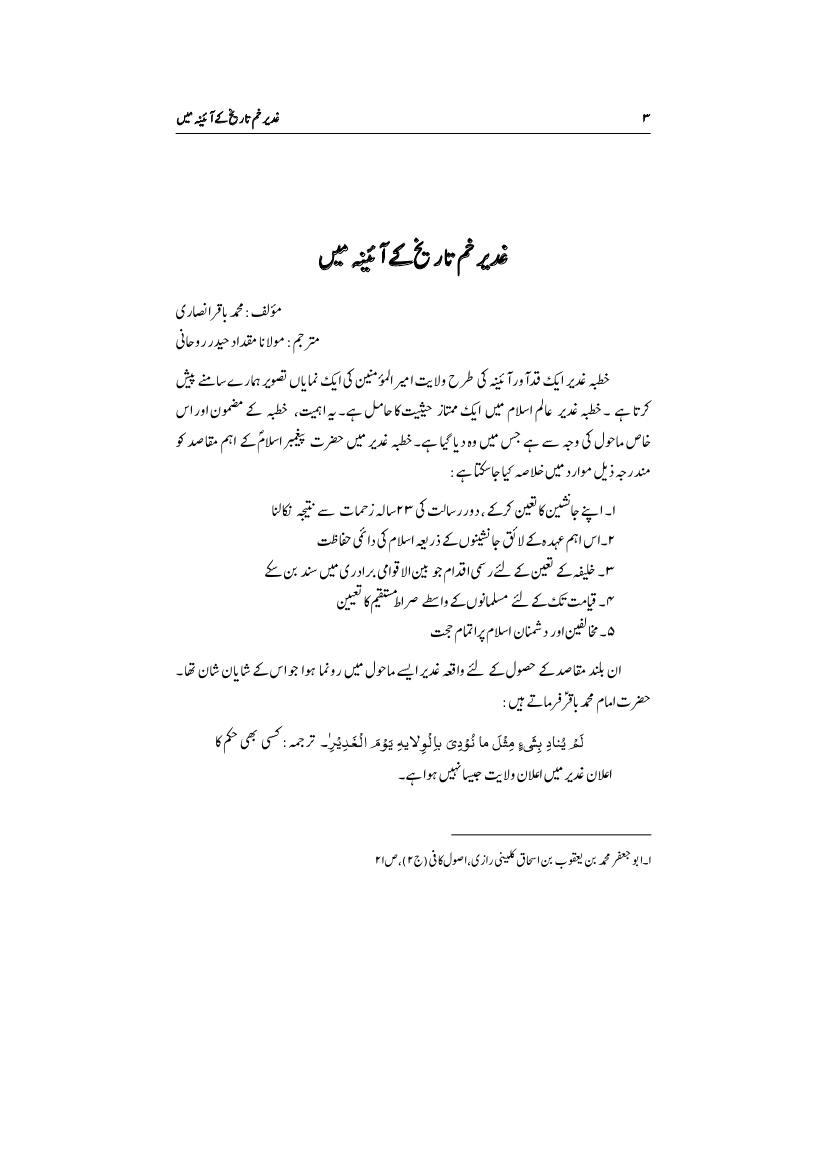 ۳ غدیر خم تاریخ کے آئینہ میں
غدیر خم تاریخ کے آئینہ میں
مؤلف : محمد باقر انصاری
مترجم : مولانا مقداد حیدر روحانی
خطبہ غدیر ایک قدآور آئینہ کی طرح ولایت امیر المؤمنین کی ایک نمایاں تصویر ہمارے سامنے پیش
کرتا ہے ۔ خطبہ غدیر عالم اسلام میں ایک ممتاز حیثیت کا حامل ہے۔ یہ اہمیت، خطبہ کے مضمون اور اس
خاص ماحول کی وجہ سے ہے جس میں وہ دیا گیا ہے۔ خطبہ غدیر میں حضرت پیغمبر اسلامؐ کے اہم مقاصد کو
مندرجہ ذیل موارد میں خلاصہ کیا جاسکتا ہے :
۱۔ اپنے جانشین کا تعین کرکے ، دور رسالت کی ۲۳ سالہ زحمات سے نتیجہ نکالنا
۲۔ اس اہم عہدہ کے لائق جانشینوں کے ذریعہ اسلام کی دائمی حفاظت
۳۔ خلیفہ کے تعین کے لئے رسمی اقدام جو بین الاقوامی برادری میں سند بن سکے
۴۔ قیامت تک کے لئے مسلمانوں کے واسطے صراط مستقیم کا تعیین
۵۔ مخالفین اور دشمنان اسلام پر اتمام حجت
ان بلند مقاصد کے حصول کے لئے واقعہ غدیر ایسے ماحول میں رونما ہوا جو اس کے شایان شان تھا۔
حضرت امام محمد باقرؑ فرماتے ہیں :
لَمْ یُنادِ بِشَیءٍ مِثْلَ ما نُوْدِیَ بِالْوِلایهِ یَوْمَ الْغَدِیْرِ۱۔ ترجمہ : کسی بھی حکم کا
اعلان غدیر میں اعلان ولایت جیسا نہیں ہوا ہے۔
۱۔ ابو جعفر محمد بن یعقوب بن اسحاق کلینی رازی، اصول کافی (ج ۲)، ص ۲۱